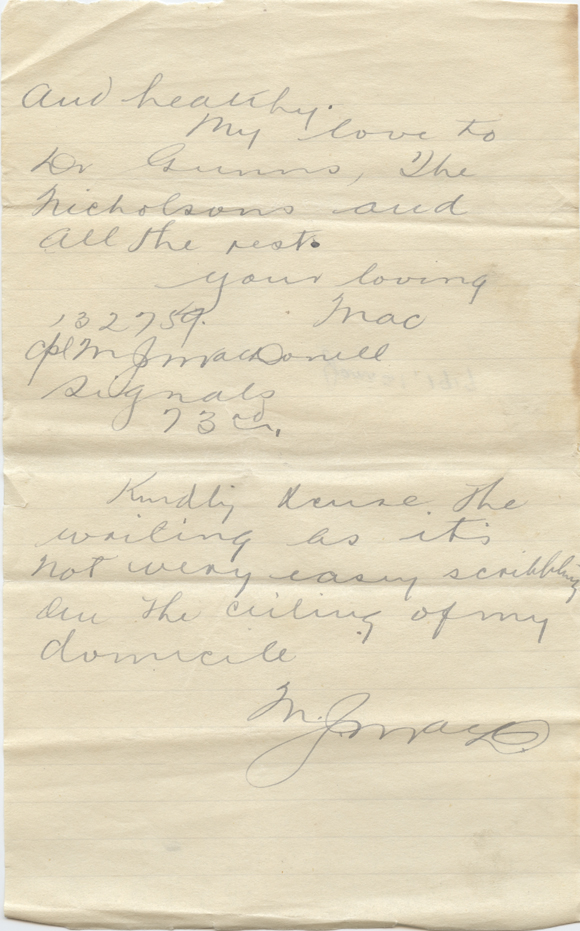 And healthy.
My love to
Dr Gunns, The
Nicholsons and
all the rest.
your loving
Mac
132759.
Cpl M J MacDonell
Signals
73rd.
Kindly excuse the
writing as it's
not very easy scribbling
on the ceiling of my
domicile
M. J. MacD.